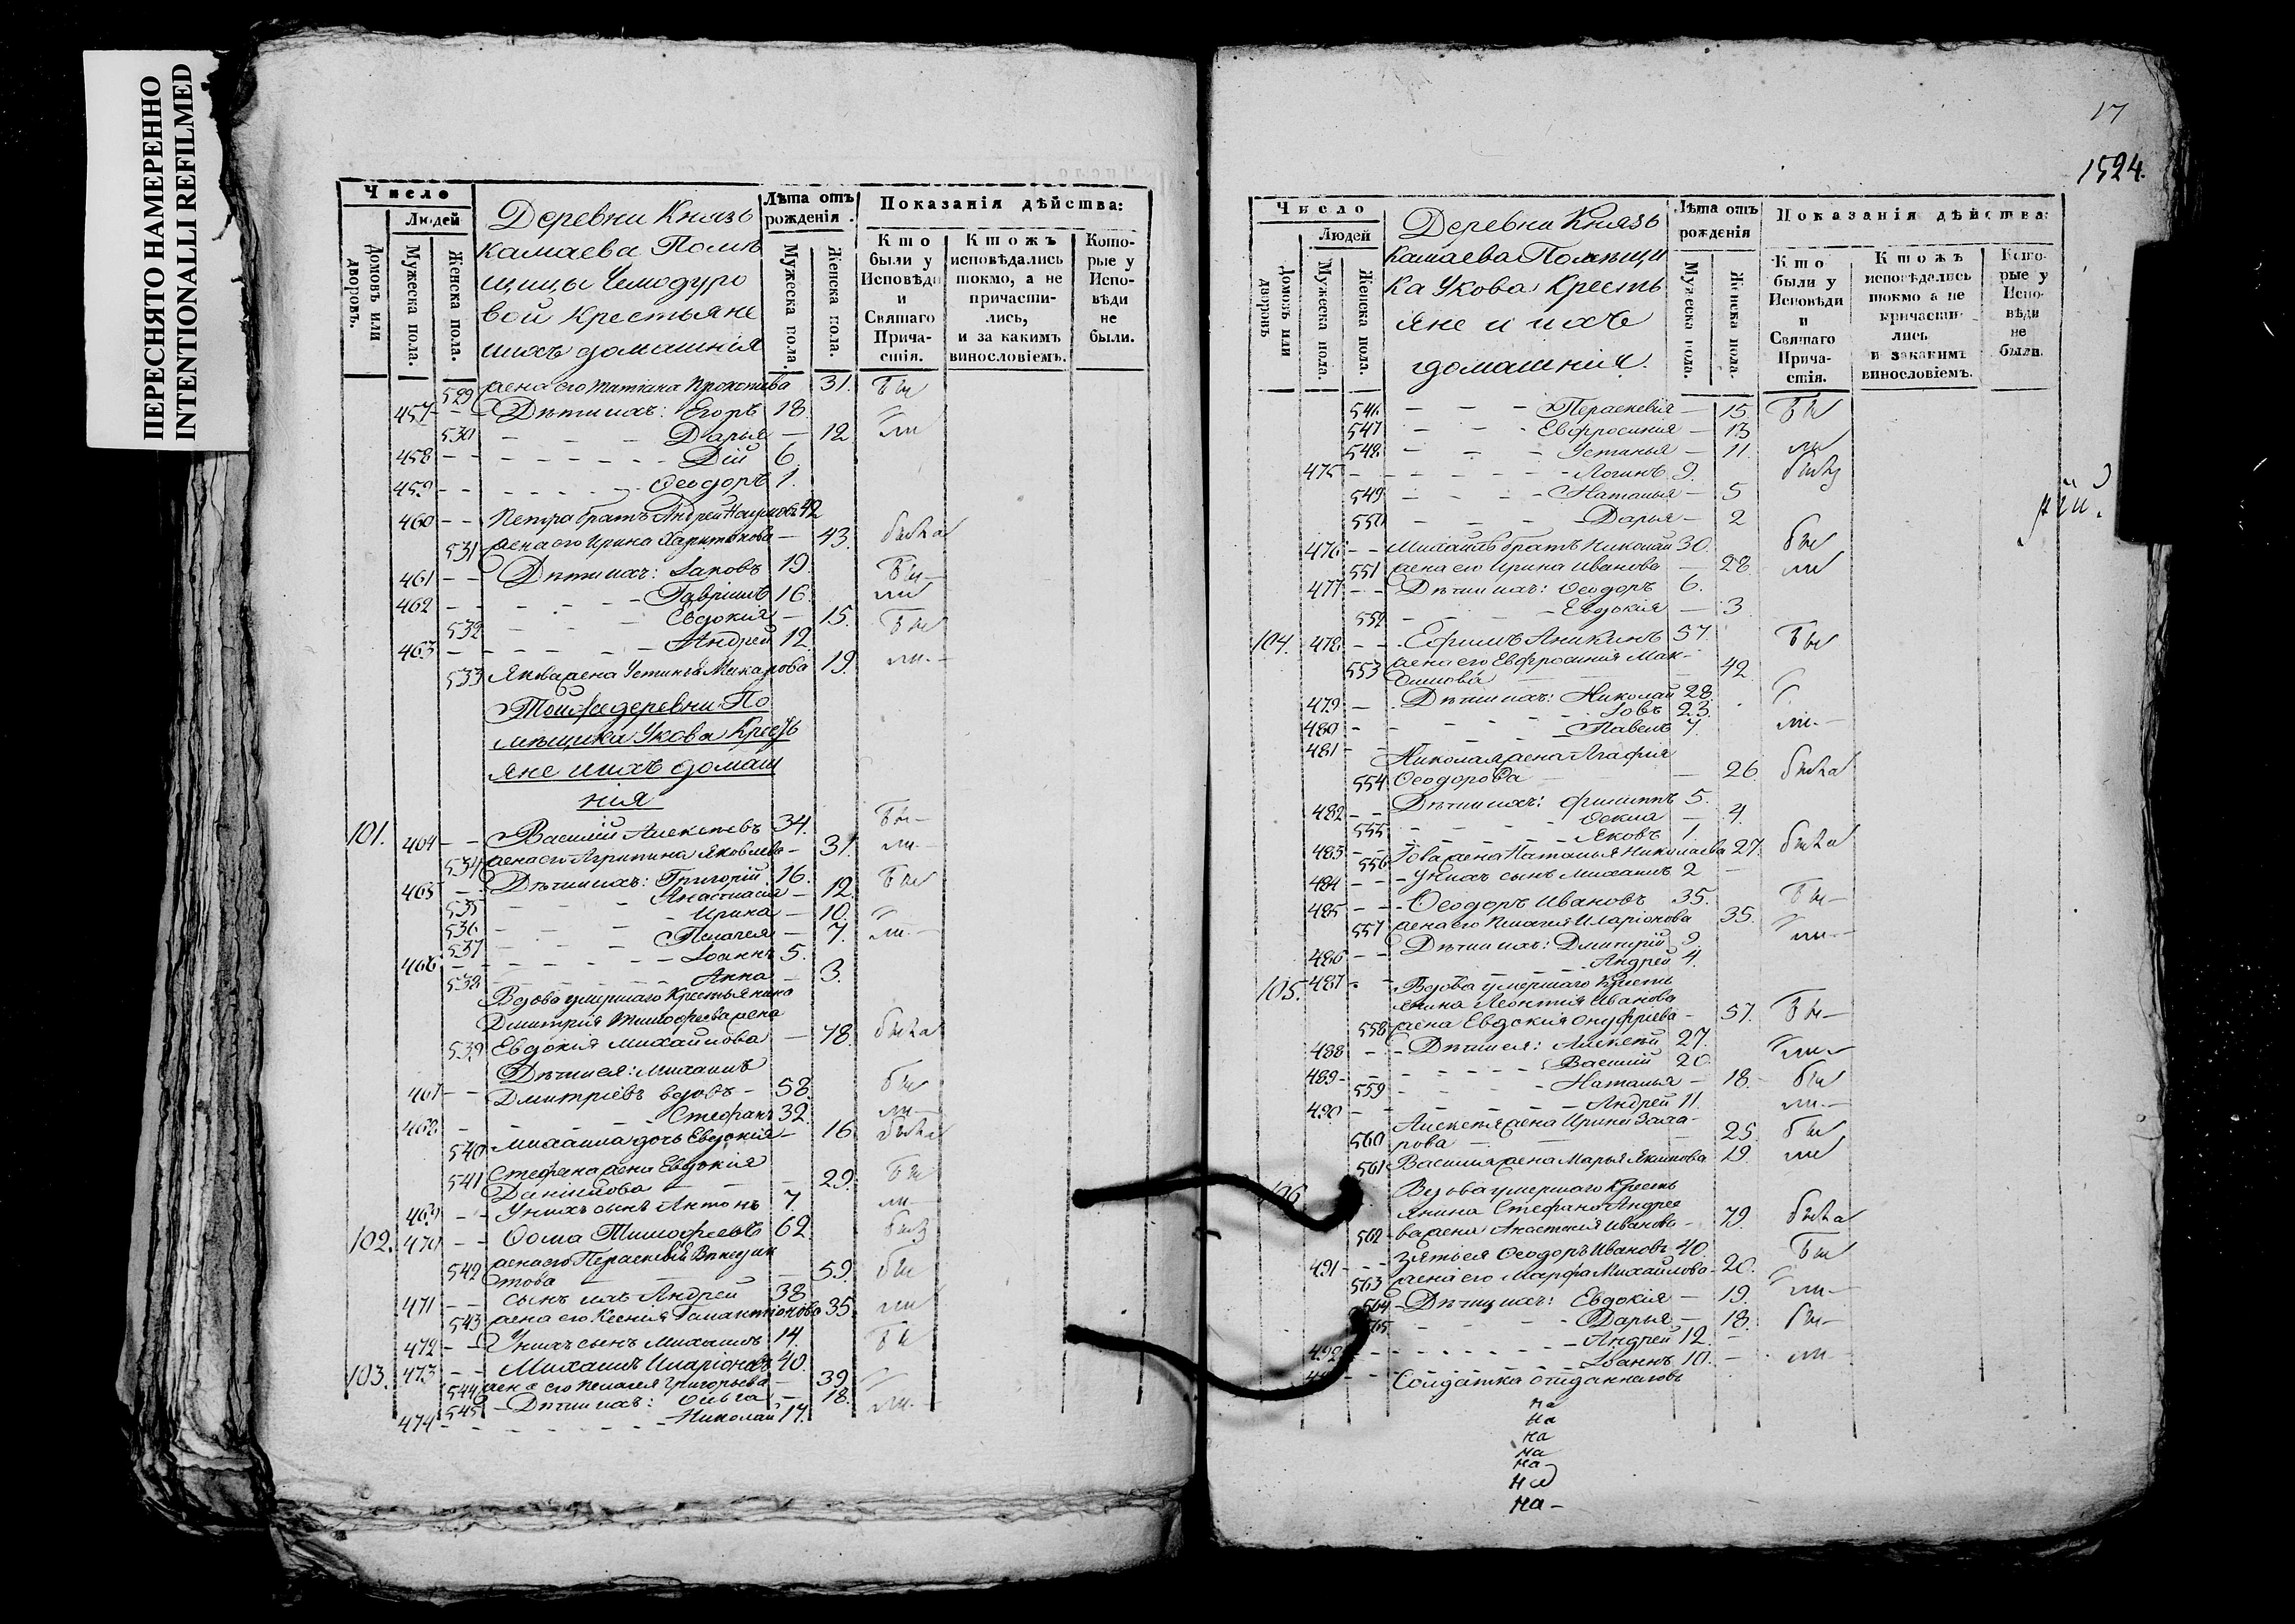 ПЕРЕСНЯТО НАМЕРЕННО
INTENTIONALLI REFILMED
Число
Людей
Домовъ или дворовъ.
Мужеска пола.
Женска пола.
Деревни Князь
камаева Помѣ
щицы Чемодуро
вой Крестьяне
ихъ домашнія
Лѣта отъ рожденія.
Мужеска пола.
Женска пола.
Показанія дѣйства:
Кто были у Исповѣди и Святаго Причастія.
Ктожъ исповѣдались токмо, а не причастились, и за какимъ винословіемъ.
Которые у Исповѣди не были.
529 жена его Татіана Прокопиева 31. Бы
457 - - Дѣти ихъ: Егоръ 18.
530 - - - Дарья - 12 ли
458 - - - Дій 6.
459 - - - Ѳеодоръ 1.
460 - - Петра братъ Андрей Наумовъ 42
531 жена его Ирина Харитонова - 43. была
461 - - Дѣти ихъ: Іаковъ 19. Бы-
462 - - - Гавріилъ 16. ли
532 - - - Евдокія - 15. Бы
463 - - - Андрей 12.
533 Якова жена Устинья Макарова 19. ли.-
Той же деревни По
мѣщика Укова Кресть
яне ихъ домаш
нія
101. 464 - - Василій Алексѣевъ 34. Бы-
534 жена его Агрипина Яковлева - 31. ли.-
465 - - Дѣти ихъ: Григорій 16. Бы
535 - - - Анастасія - 12.
536 - - - Ирина - 10.
537 - - - Пелагея - 7. ли.-
466 - - - Іоаннъ 5.
538 - - - Анна - 3.
Вдова умершаго Крестьянина
Дмитрія Тимофеева жена
539 Евдокія Михайлова - 78. была
Дѣти ея: Михаилъ
467 - - Дмитріевъ вдовъ - 58. бы
468 - - - Стефанъ 32. ли-
540 Михаила дочь Евдокія - 16. была
541 Стефана жена Евдокія
Даніилова - 29. Бы
469 - - У нихъ сынъ Антонъ 7. ли-
102. 470 - - Ѳома Тимофеевъ 62. былъ
542 жена его Параскевія Венедик
това - 59. бы
471 - - сынъ ихъ Андрей 38
543 жена его Ксенія Галактіонова 35. ли
472 - - У нихъ сынъ Михаилъ 14. Бы
103. 473 - - Михаилъ Иларіоновъ 40.
544 жена его Пелагея Григорьева - 39.
545 - Дѣти ихъ: Ольга - 18.
474 - - - Николай 17. ли.-
17
1524.
Число
Людей
Домовъ или дворовъ
Мужеска пола.
Женска пола.
Деревни Князь
камаева Помѣщи
ка Укова Кресть
яне и ихъ
домашнія.
Лѣта отъ рожденія
Мужеска пола.
Женска пола.
Показанія дѣйства:
Кто были у Исповѣди и Святаго Причастія.
Ктожъ исповѣдались токмо а не причастились и закакимъ винословіемъ.
Которые у Исповѣди не были.
546 - - - Параскевія - 15. Бы
547 - - - Евфросинія - 13
548 - - - Устинья - 11. ли
475 - - - Логинъ 9. былъ
549 - - - Наталья - 5
550 - - - Дарья - 2
476 - - Михаилъ братъ Николай 30. бы
551 жена его Ирина Иванова - 28. ли
477 - - Дѣти ихъ: Ѳеодоръ 6.
552 - - - Евдокія - 3.
104. 478 - - Ефимъ Аникинъ 57. Бы
553 жена его Евфросинія Мак-
симова 42.
479 - - Дѣти ихъ: Николай 28.
480 - - - Іовъ 23.
481 - - - Павелъ 7. ли.-
Николая жена Агафія
554 Ѳеодорова - 26. была
482 - - Дѣти ихъ: Филиппъ 5.
555 - - - Ѳекла - 4.
483 - - - Яковъ 1.
556 Іова жена Наталья Николаева 27. была
484 - - У нихъ сынъ Михаилъ 2 -
485 - - Ѳеодоръ Ивановъ 35. Бы-
557 жена его Пелагея Иларіонова 35.
486 - - Дѣти ихъ: Дмитрій 9. ли.-
487 - - - Андрей 4.
105. Вдова умершаго Кресть
янина Леонтія Иванова
558 жена Евдокія Онуфріева - 57. Бы-
488 - - Дѣти ея: Алексѣй 27.
489 - - - Василій 20. ли-
559 - - - Наталья - 18. - бы
490 - - - Андрей 11. ли.-
Алексѣя жена Ирина Заха-
560 рова - 25. бы
561 Василія жена Марья Якимова 19. ли
106 Вдова умершаго Кресть
янина Стефана Андрее
562 ва жена Анастасія Иванова - 79. была
491 - - Зять ея Ѳеодоръ Ивановъ 40. Бы
563 жена его Марфа Михайлова - 20.
564 - Дѣти ихъ: Евдокія - 19. ли-
565 - - - Дарья - 18. бы-
492 - - - Андрей 12. -
- - - Іоаннъ 10. - ли-
Солдатка
на
на
на
на
на-
на
на-